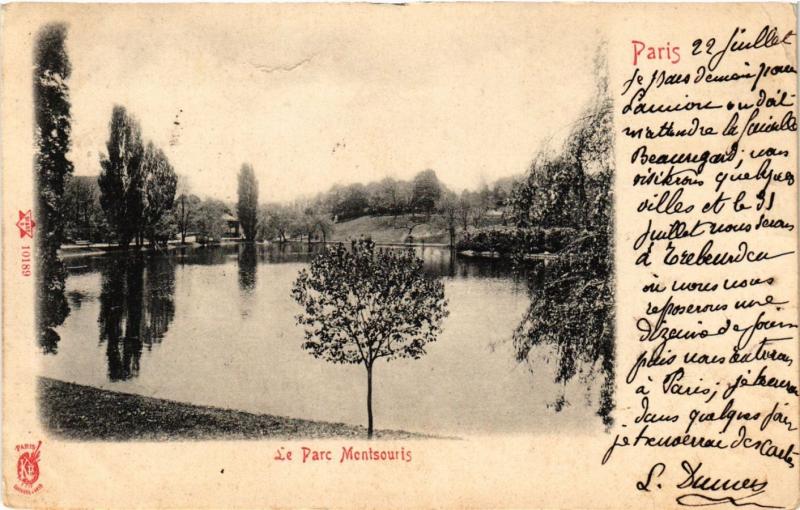 Paris 22 Juillet
Je pars demain pour
Lannion où doit
m'attendre la famille
Beauregard; nous
visiterons quelques
villes et le 31
Juillet nous serons
à Trebeurden
où nous nous
reposerons une
dizaine de jours
puis nous rentrerons
à Paris;
dans quelques jours
je t'enverrai des cartes
L.
10189
PARIS
Le Parc Montsouris